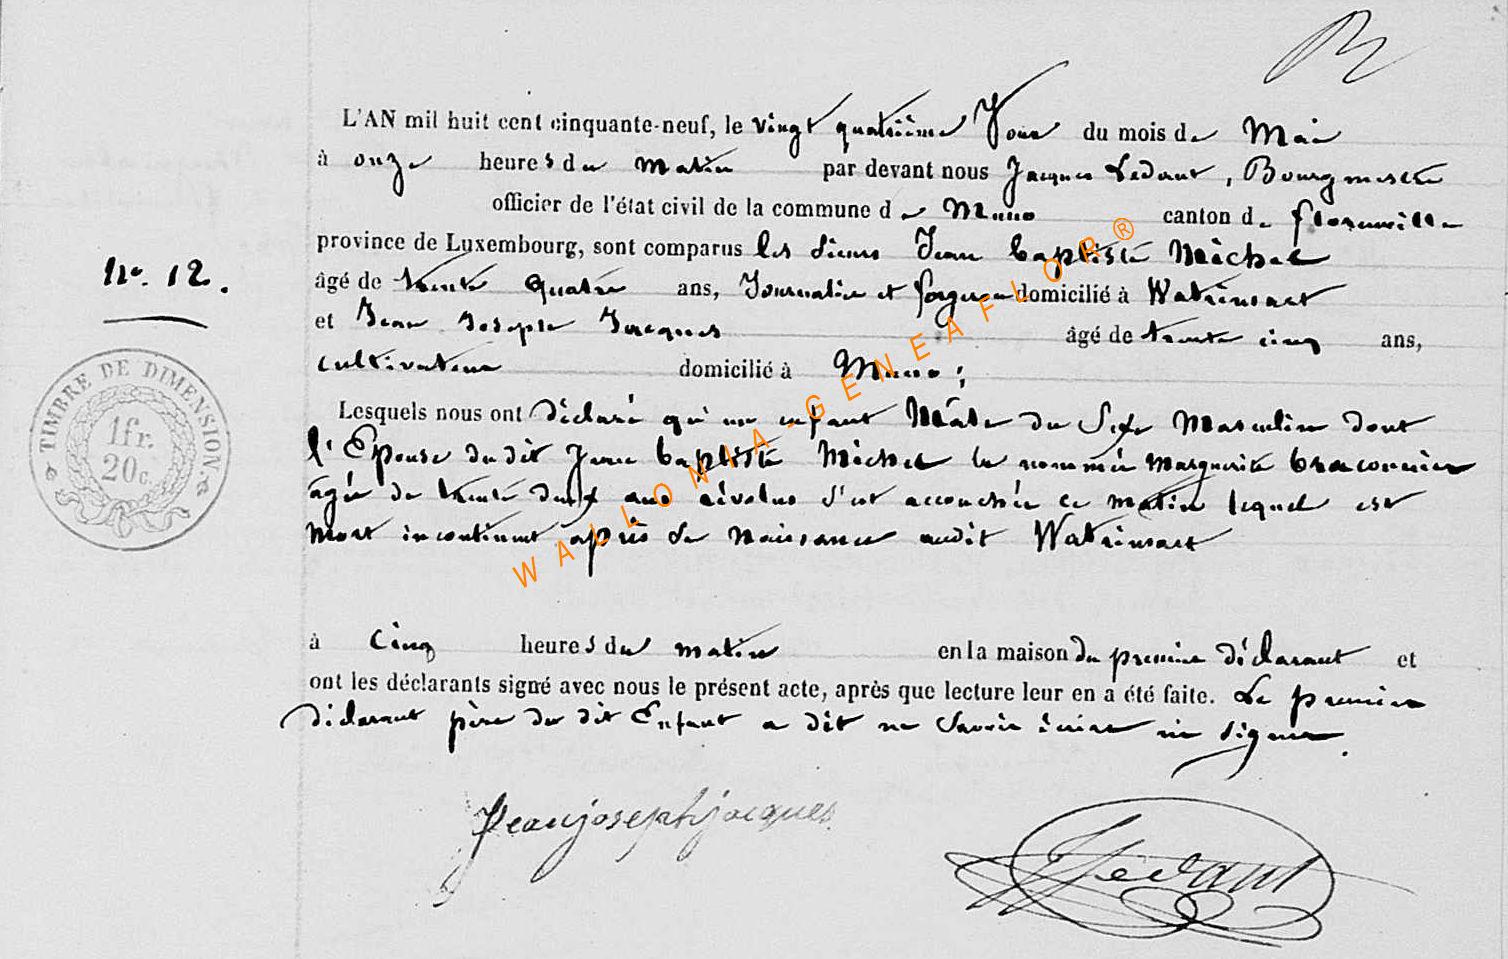 L'AN mil huit cent cinquante-neuf, le vingt quatrième Jour du mois de Mai
à onze heures du matin par devant nous Jacques Ledant, Bourgmestre
officier de l'état civil de la commune de Muno canton de florenville
province de Luxembourg, sont comparus les Sieurs Jean baptiste Michel
No. 12.
âgé de trente quatre ans, Journalier et forgeron domicilié à Watrinsart
et Jean Joseph Jacques âgé de trente cinq ans,
cultivateur domicilié à Muno;
TIMBRE DE DIMENSION
1 fr.
20 c.
Lesquels nous ont déclaré qu'un enfant Mâle du Sexe Masculin dont
l'Epouse du dit Jean baptiste Michel la nommée Marguerite braconnier
âgée de trente deux ans révolus s'est accouchée ce matin lequel est
mort incontinent après sa naissance audit Watrinsart
à cinq heures du matin en la maison du premier déclarant et
ont les déclarants signé avec nous le présent acte, après que lecture leur en a été faite. Le premier
déclarant père du dit Enfant a dit ne Savoir écrire ni signer.
Jean joseph jacques
Ledant
WALLONIA-GENEAFLOR®